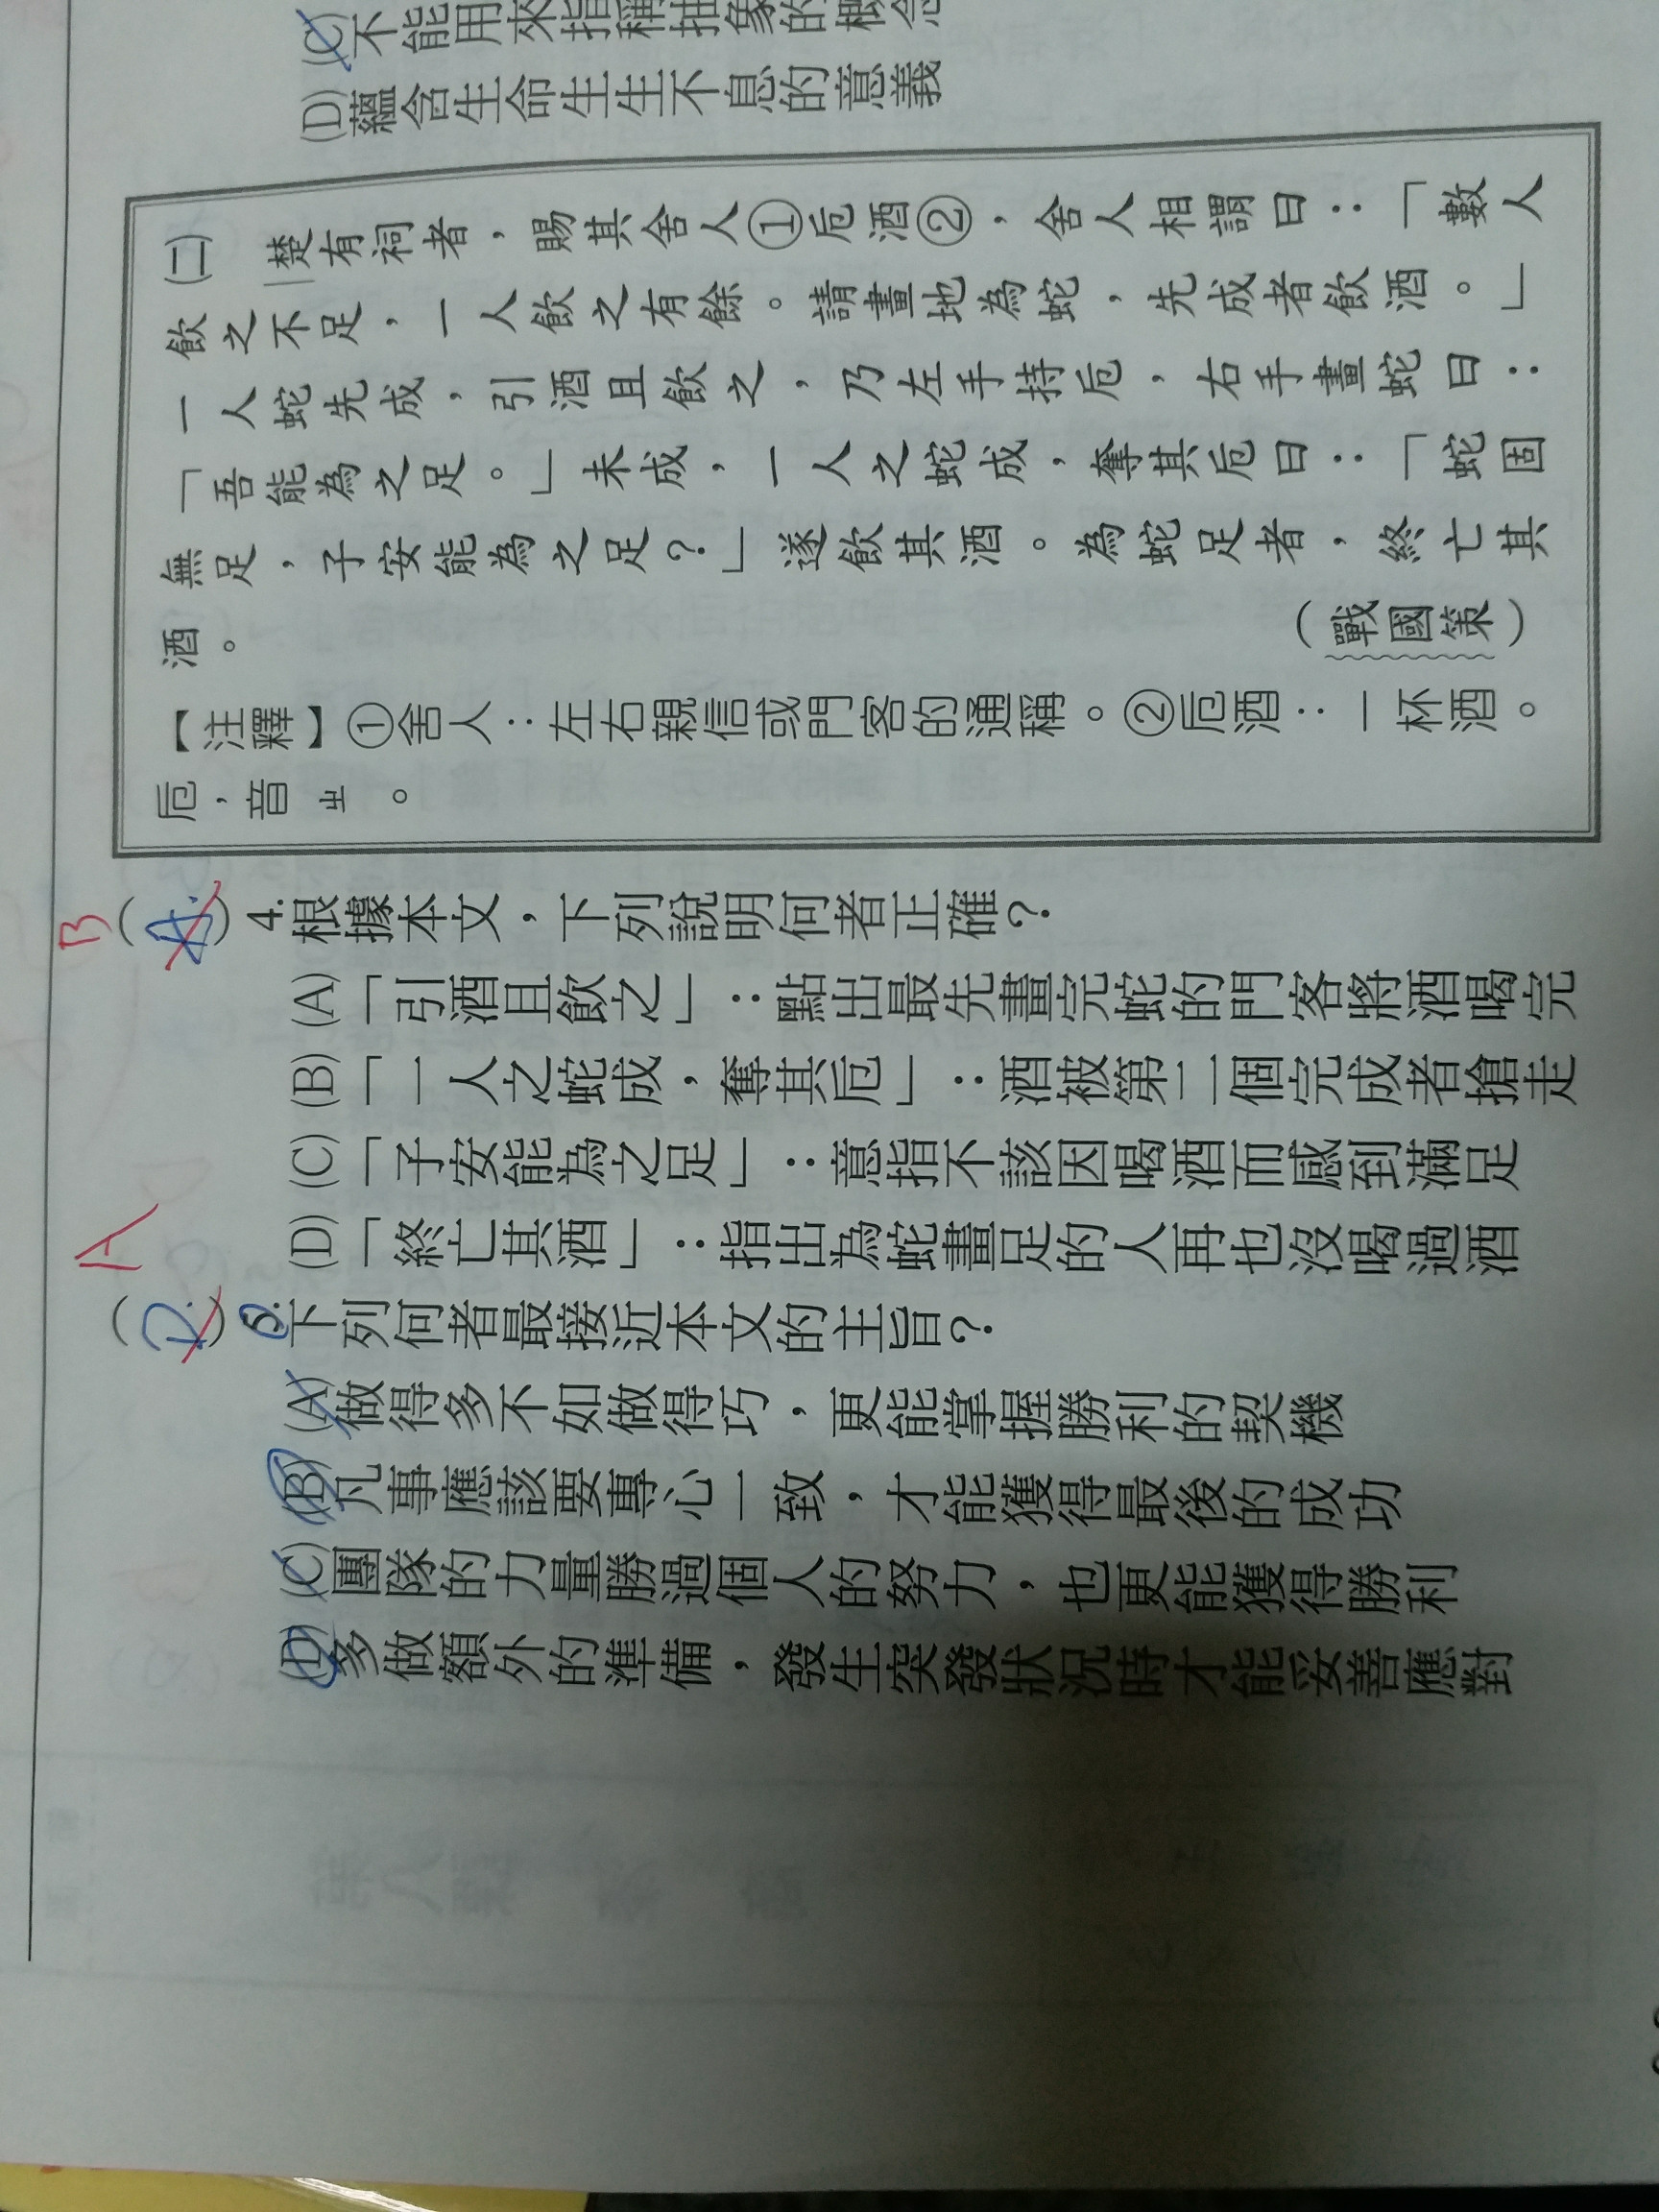 不能用來指稱抽象的概念
(D)蘊含生命生生不息的意義
(二) 楚有祠者，賜其舍人①卮酒②，舍人相謂曰：「數人
飲之不足，一人飲之有餘。請畫地為蛇，先成者飲酒。」
一人蛇先成，引酒且飲之，乃左手持卮，右手畫蛇曰：
「吾能為之足。」未成，一人之蛇成，奪其卮曰：「蛇固
無足，子安能為之足？」遂飲其酒。為蛇足者，終亡其
酒。
（戰國策）
【注釋】①舍人：左右親信或門客的通稱。②卮酒：一杯酒。
卮，音ㄓ。
B
( A ) 4.根據本文，下列說明何者正確？
(A)「引酒且飲之」：點出最先畫完蛇的門客將酒喝完
(B)「一人之蛇成，奪其卮」：酒被第二個完成者搶走
(C)「子安能為之足」：意指不該因喝酒而感到滿足
(D)「終亡其酒」：指出為蛇畫足的人再也沒喝過酒
A
( D ) 5.下列何者最接近本文的主旨？
(A)做得多不如做得巧，更能掌握勝利的契機
(B)凡事應該要專心一致，才能獲得最後的成功
(C)團隊的力量勝過個人的努力，也更能獲得勝利
(D)多做額外的準備，發生突發狀況時才能妥善應對